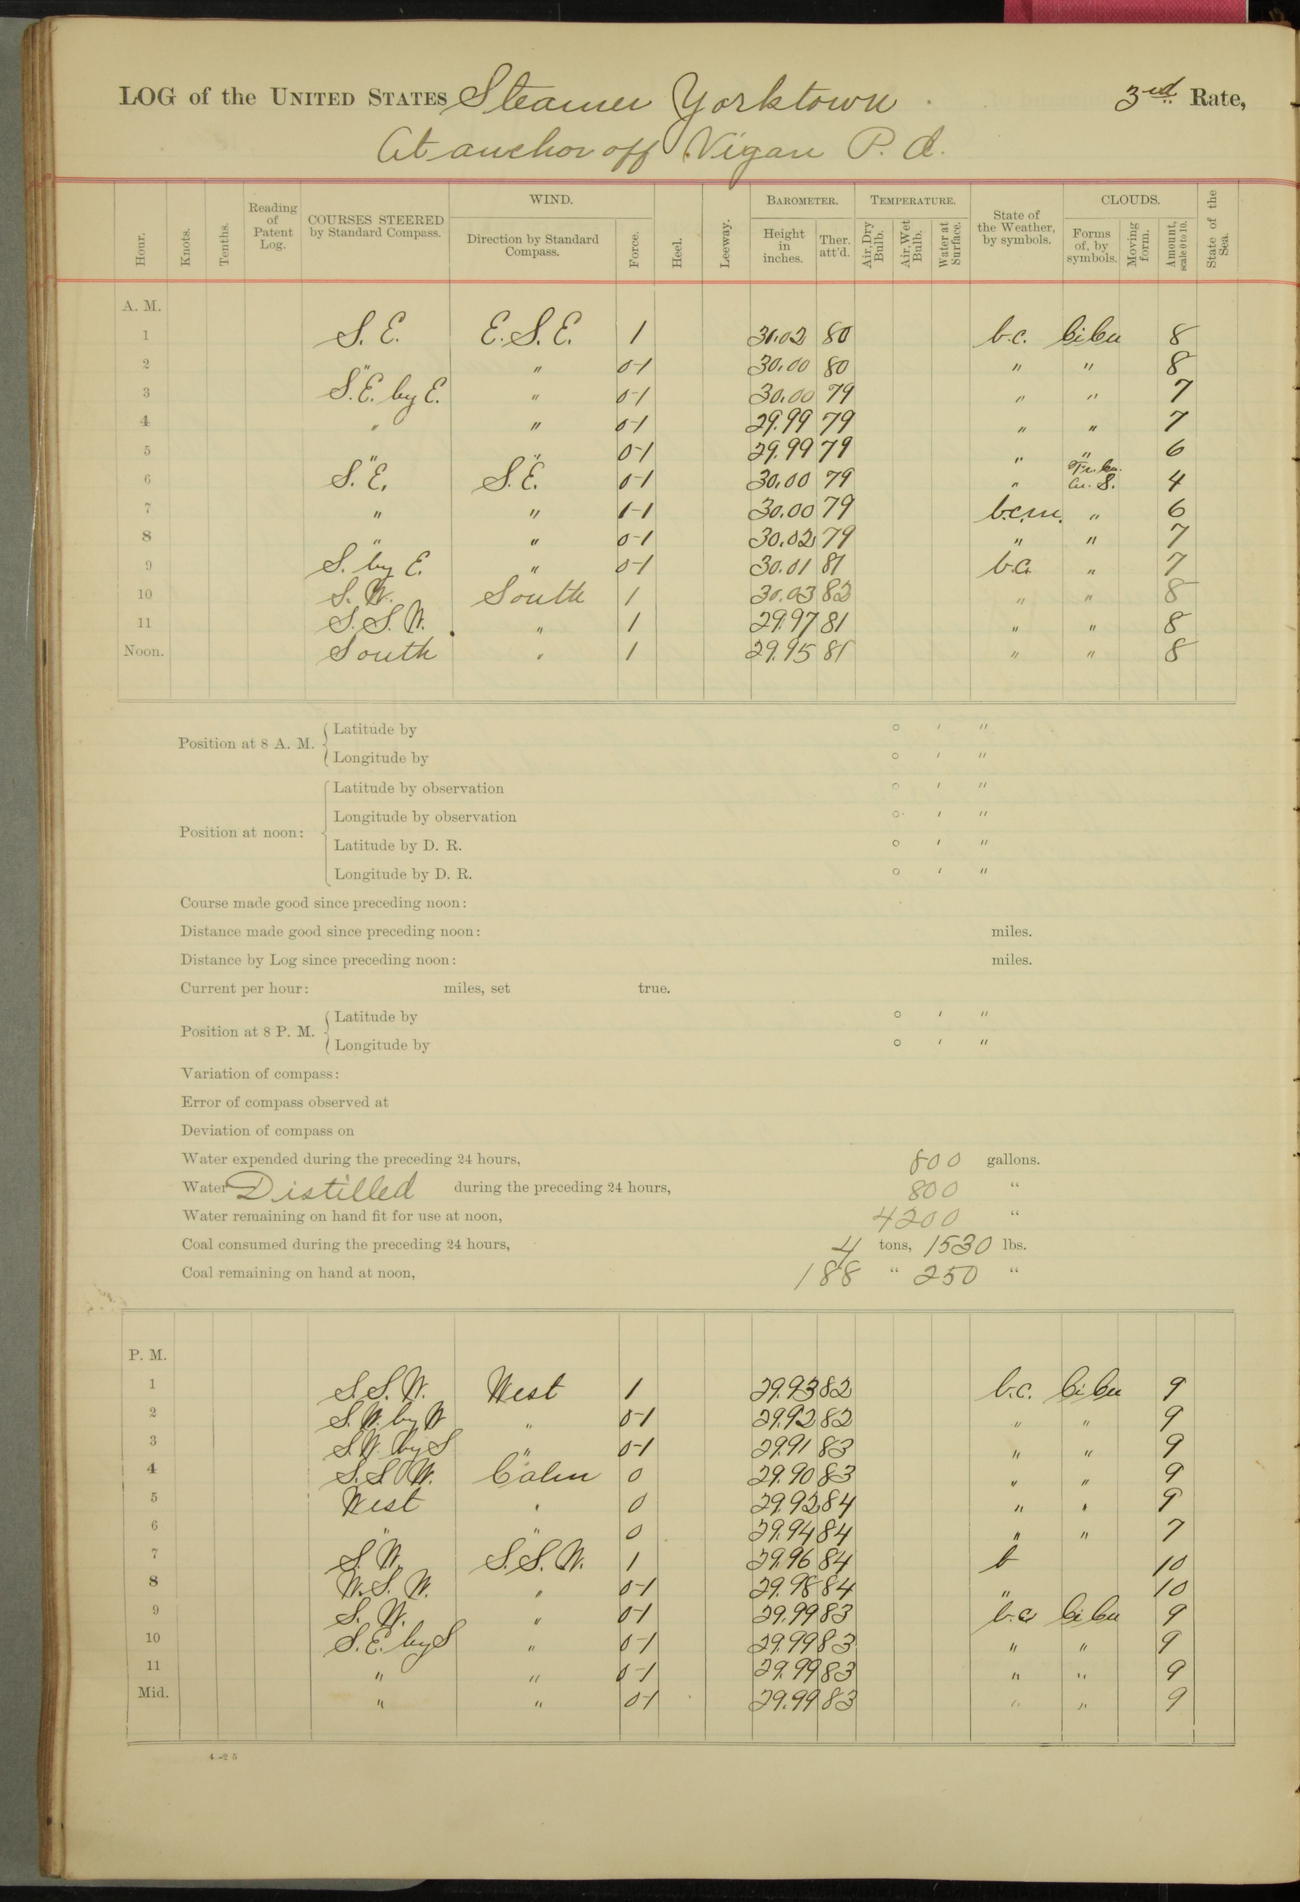 LOG of the UNITED STATES Steamer Yorktown 3rd Rate,
At anchor off Vigan P. I.
Hour. Knots. Tenths. Reading of Patent Log. COURSES STEERED by Standard Compass. WIND. Direction by Standard Compass. Force. Heel. Leeway. BAROMETER. Height in inches. Ther. att'd. TEMPERATURE. Air, Dry Bulb. Air, Wet Bulb. Water at Surface. State of the Weather, by symbols. CLOUDS. Forms of, by symbols. Moving form. Amount, scale 0 to 10. State of the Sea.
A. M.
1 S. E. E. S. E. 1 30.02 80 b.c. Ci Cu 8
2 " " 0-1 30.00 80 " " 8
3 S. E. by E. " 0-1 30.00 79 " " 7
4 " " 0-1 29.99 79 " " 7
5 " " 0-1 29.99 79 " " 6
6 S. E. S. E. 0-1 30.00 79 " Cu. S. 4
7 " " 1-1 30.00 79 b.c.m. " 6
8 " " 0-1 30.02 79 " " 7
9 S. by E. " 0-1 30.01 81 b.c. " 7
10 S. W. South 1 30.03 82 " " 8
11 S. S. W. " 1 29.97 81 " " 8
Noon. South " 1 29.95 81 " " 8
Position at 8 A. M. Latitude by ° ′ ″
Longitude by ° ′ ″
Position at noon: Latitude by observation ° ′ ″
Longitude by observation ° ′ ″
Latitude by D. R. ° ′ ″
Longitude by D. R. ° ′ ″
Course made good since preceding noon:
Distance made good since preceding noon: miles.
Distance by Log since preceding noon: miles.
Current per hour: miles, set true.
Position at 8 P. M. Latitude by ° ′ ″
Longitude by ° ′ ″
Variation of compass:
Error of compass observed at
Deviation of compass on
Water expended during the preceding 24 hours, 800 gallons.
Water Distilled during the preceding 24 hours, 800 "
Water remaining on hand fit for use at noon, 4200 "
Coal consumed during the preceding 24 hours, 4 tons, 1530 lbs.
Coal remaining on hand at noon, 188 " 250 "
P. M.
1 S. S. W. West 1 29.93 82 b.c. Ci Cu 9
2 S. W. by W " 0-1 29.92 82 " " 9
3 S. W. by S " 0-1 29.91 83 " " 9
4 S. S. W. Calm 0 29.90 83 " " 9
5 West " 0 29.92 84 " " 9
6 " " 0 29.94 84 " " 7
7 S. W. S. S. W. 1 29.96 84 b 10
8 W. S. W. " 0-1 29.98 84 " 10
9 S. W. " 0-1 29.99 83 b.c. Ci Cu 9
10 S. E. by S " 0-1 29.99 83 " " 9
11 " " 0-1 29.99 83 " " 9
Mid. " " 0-1 29.99 83 " " 9
4-25